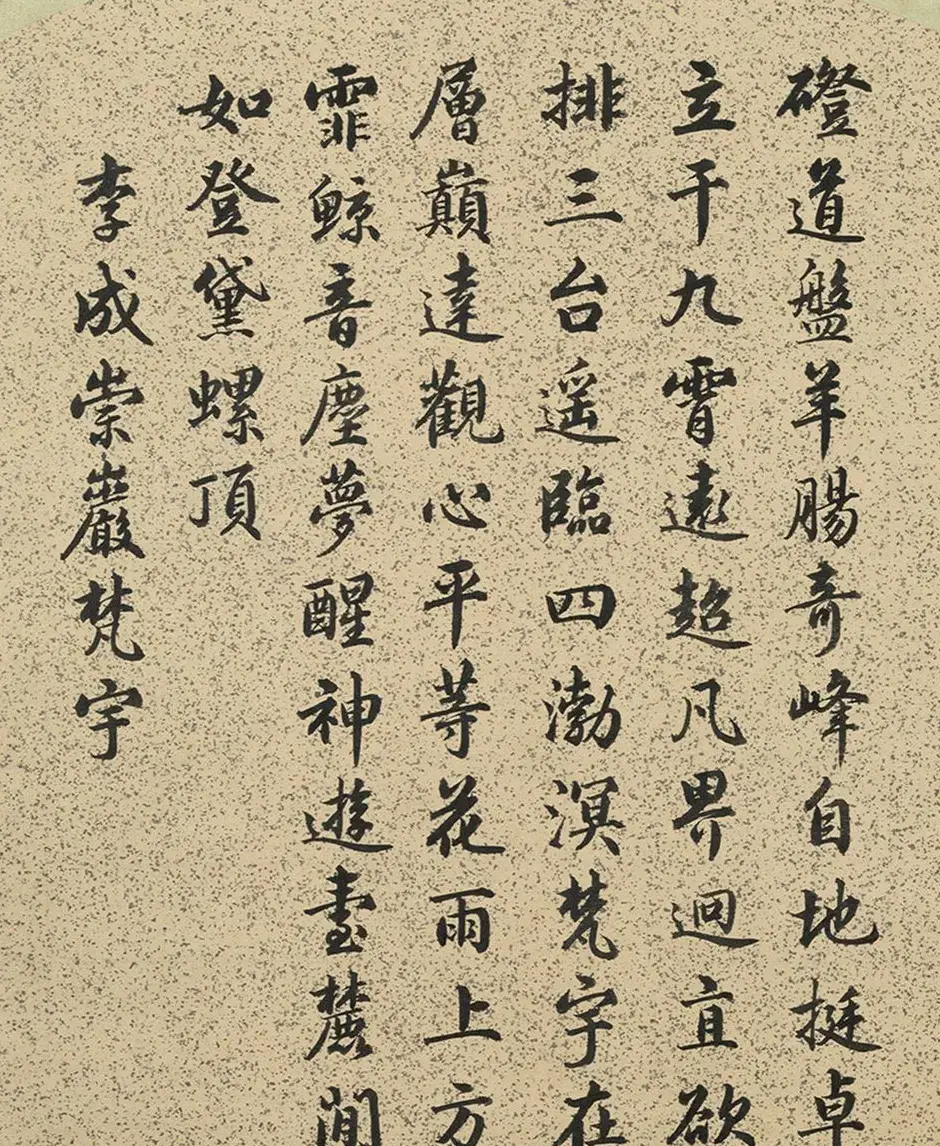 磴道盤羊腸奇峰自地挺卓
立干九霄遠超凡界迥宜欲
排三台遥臨四渤溟梵宇在
層巔達觀心平等花雨上方
霏鲸音塵夢醒神遊臺麓間
如登黛螺頂
李成崇巖梵宇